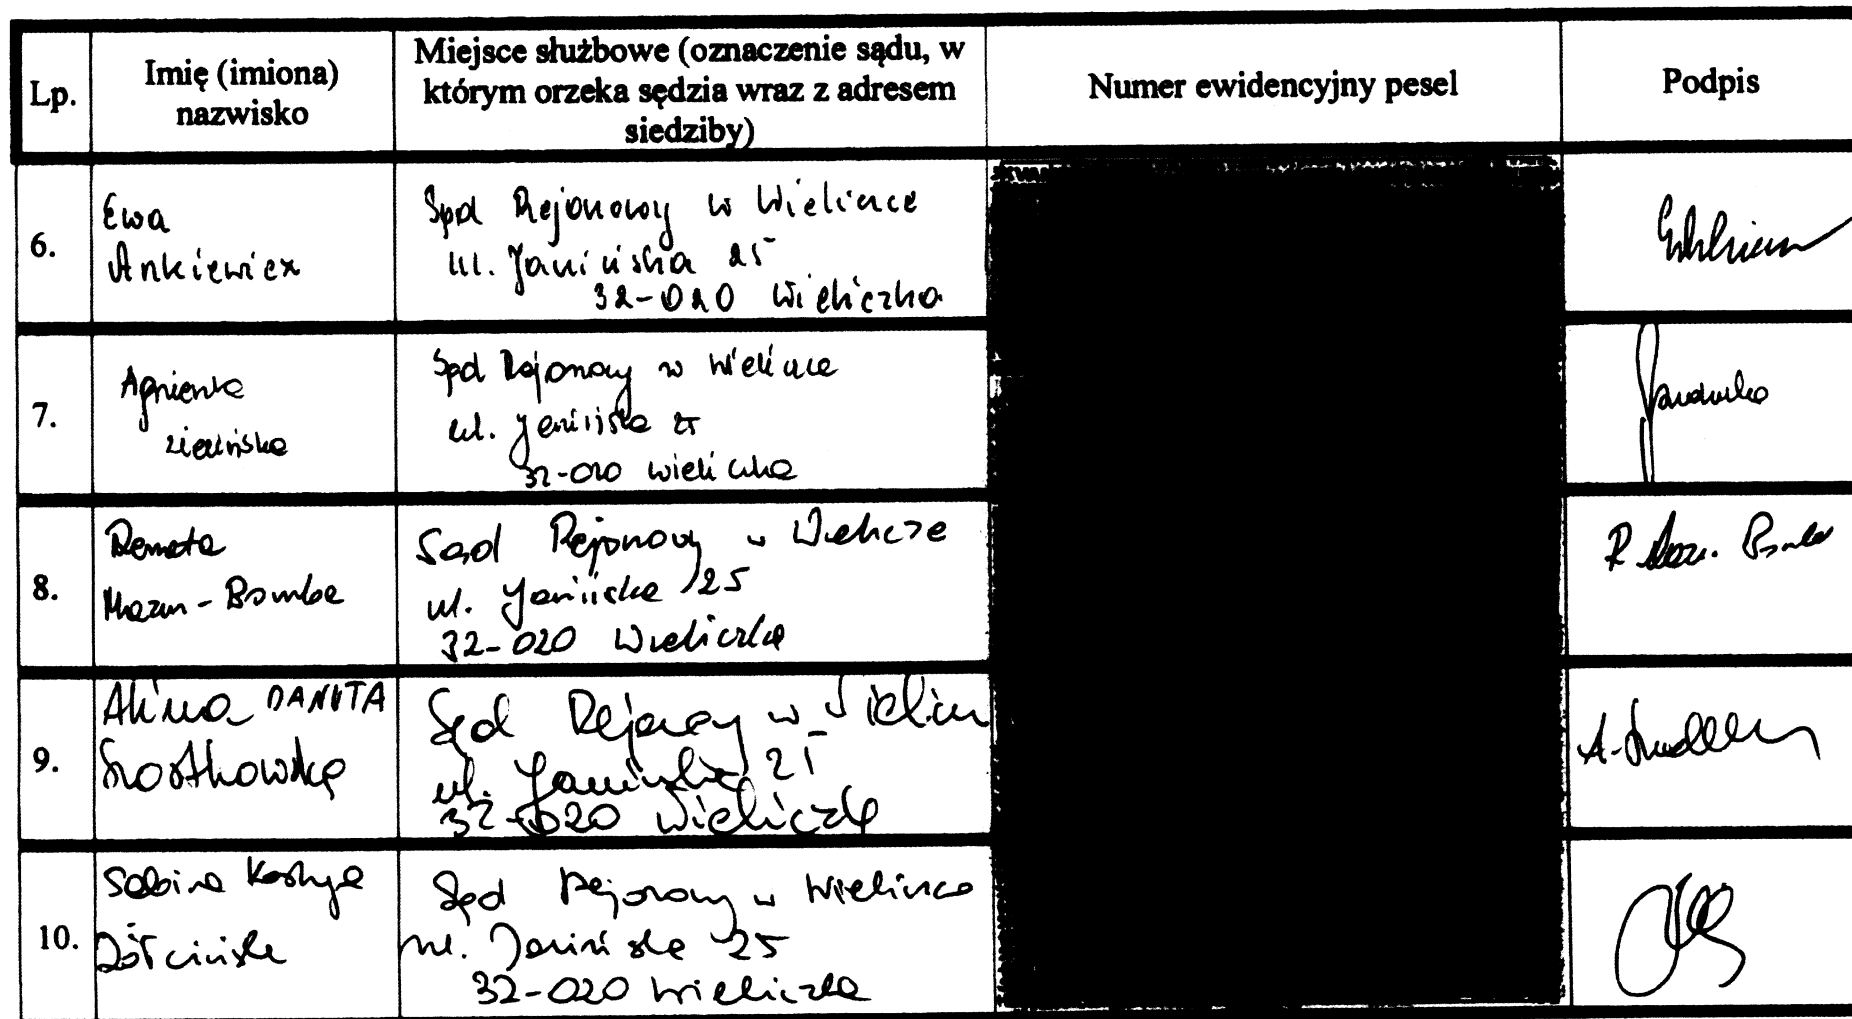 Lp.
Imię (imiona)
nazwisko
Miejsce służbowe (oznaczenie sądu, w
którym orzeka sędzia wraz z adresem
siedziby)
Numer ewidencyjny pesel
Podpis
6.
Ewa
Ankiewicz
Sąd Rejonowy w Wieliczce
ul. Janińska 25
32-020 Wieliczka
7.
Agnieszka
Zielińska
Sąd Rejonowy w Wieliczce
ul. Janińska 25
32-020 Wieliczka
8.
Renata
Mazur-Bomba
Sąd Rejonowy w Wieliczce
ul. Janińska 25
32-020 Wieliczka
9.
Alina DANUTA
Sąd Rejonowy w
ul. Janińska 25
32-020 Wieliczka
10.
Sabina
Sąd Rejonowy w Wieliczce
ul. Janińska 25
32-020 Wieliczka